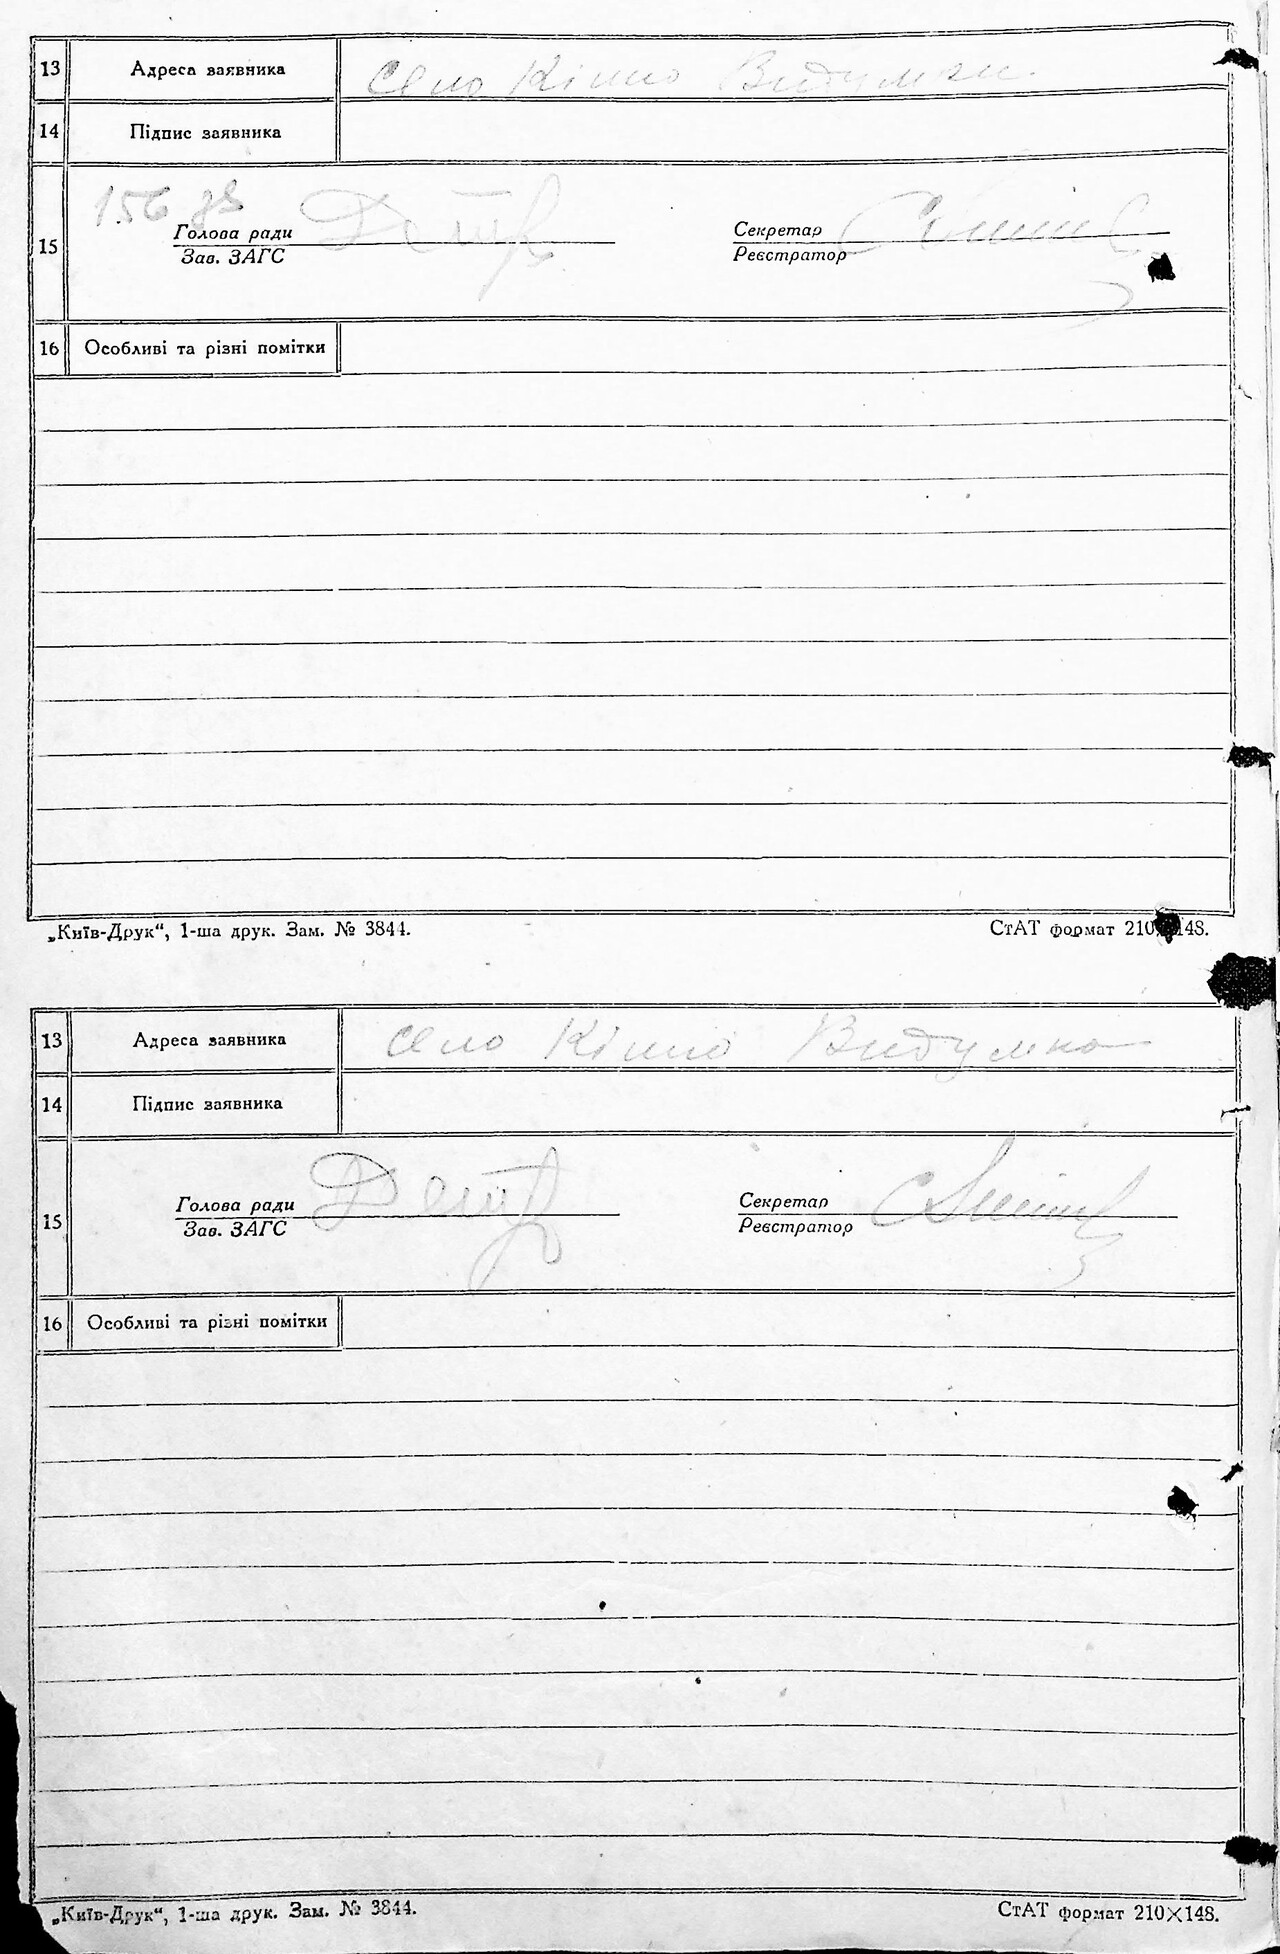 13 Адреса заявника село Кішно Видумка
14 Підпис заявника
156 зв
15 Голова ради Секретар
Зав. ЗАГС Реєстратор
16 Особливі та різні помітки
„Київ-Друк“, 1-ша друк. Зам. № 3844. СтАТ формат 210 148.
13 Адреса заявника село Кішно Видумка
14 Підпис заявника
15 Голова ради Секретар
Зав. ЗАГС Реєстратор
16 Особливі та різні помітки
„Київ-Друк“, 1-ша друк. Зам. № 3844. СтАТ формат 210×148.